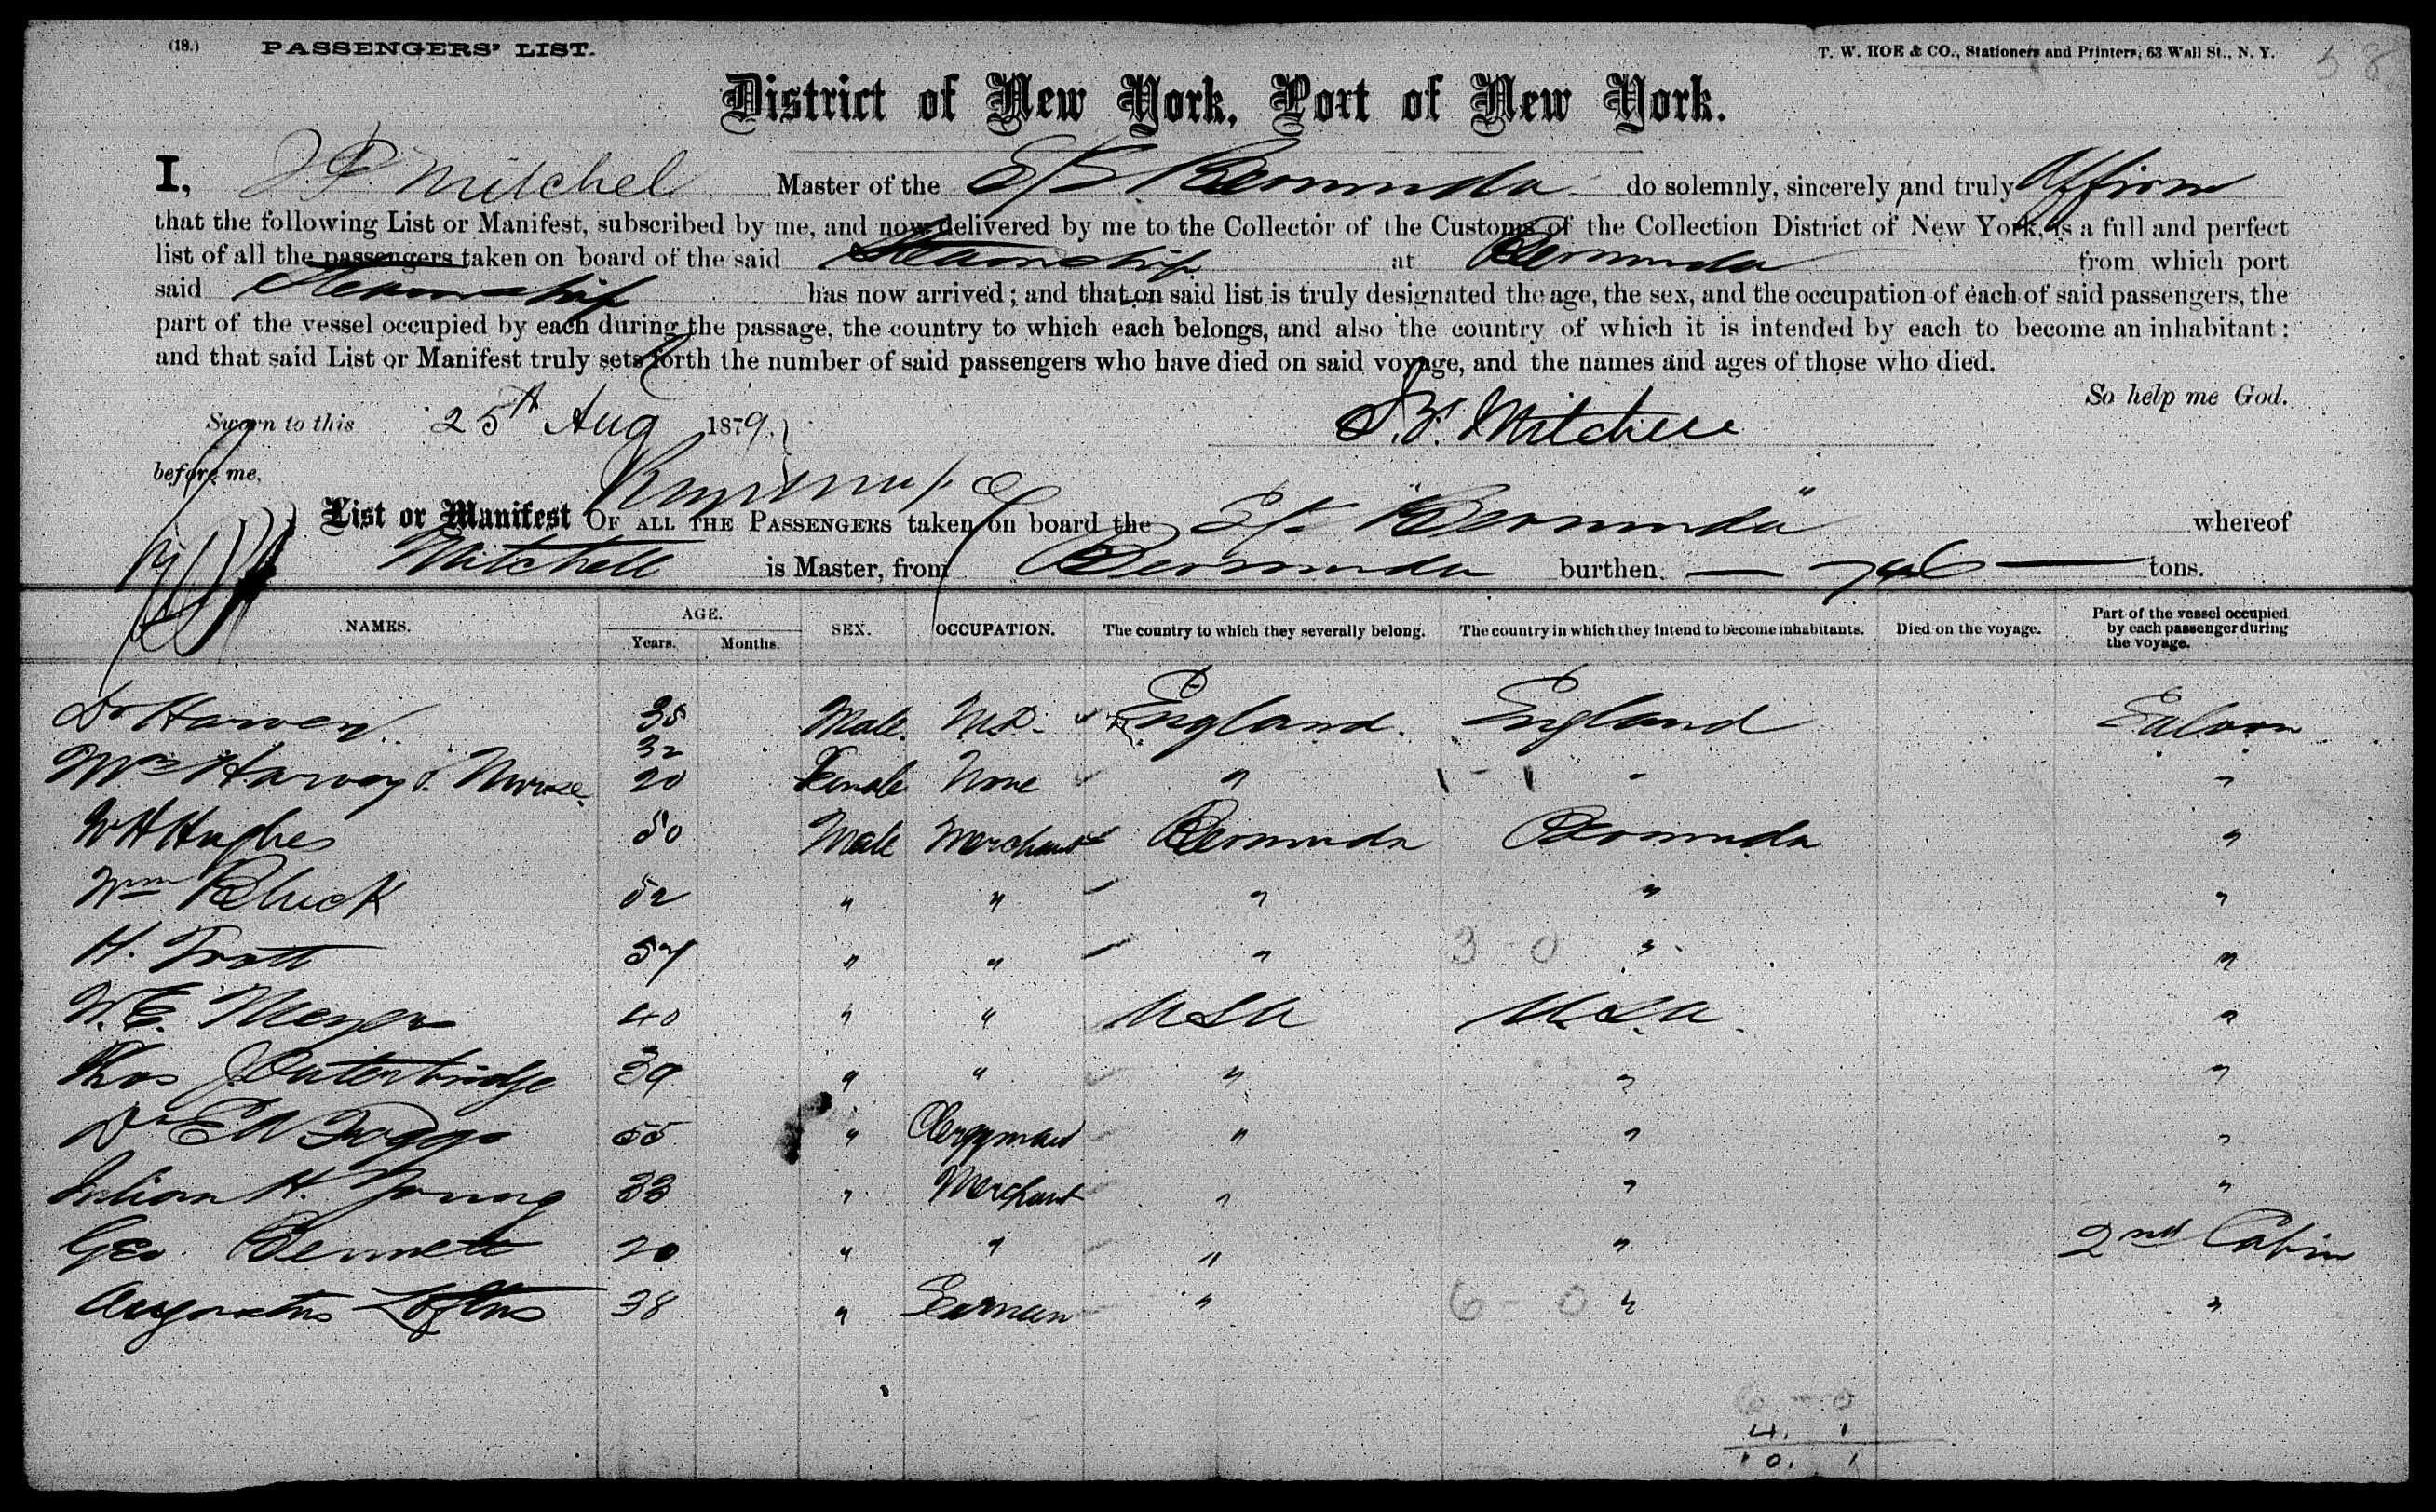 (18.) PASSENGERS' LIST. T. W. ROE & CO., Stationers and Printers, 63 Wall St., N. Y. 58
District of New York, Port of New York.
I, J. F. Mitchel Master of the S/S Bermuda do solemnly, sincerely and truly Affirm
that the following List or Manifest, subscribed by me, and now delivered by me to the Collector of the Customs of the Collection District of New York, is a full and perfect
list of all the passengers taken on board of the said Steamship at Bermuda from which port
said Steamship has now arrived; and that on said list is truly designated the age, the sex, and the occupation of each of said passengers, the
part of the vessel occupied by each during the passage, the country to which each belongs, and also the country of which it is intended by each to become an inhabitant;
and that said List or Manifest truly sets forth the number of said passengers who have died on said voyage, and the names and ages of those who died.
So help me God.
Sworn to this 25th Aug 1879. Mitchell
before me,
List or Manifest OF ALL THE PASSENGERS taken on board the S/S "Bermuda" whereof
Mitchell is Master, from Bermuda burthen — — tons.
NAMES. AGE. Years. Months. SEX. OCCUPATION. The country to which they severally belong. The country in which they intend to become inhabitants. Died on the voyage. Part of the vessel occupied by each passenger during the voyage.
Dr Harvey 35 Male. M.D. England. England Saloon
32
Mrs Harvey & Nurse 20 Female None " 1 - 1 " "
W H Hughes 50 Male Merchant Bermuda Bermuda "
Wm Bluck 52 " " " " "
H. Trott 57 " " " 3 - 0 " "
W. E. Meyer 40 " " USA U.S.A. "
Thos J Outerbridge 39 " " " " "
Dr E W 55 " Clergyman " " "
Julian H. Young 33 " Merchant " " "
Geo. Bennett 20 " " " " 2nd Cabin
Augustus Loftus 38 " Seaman " 6 - 0 " "
6 - 0
4. 1
10. 1